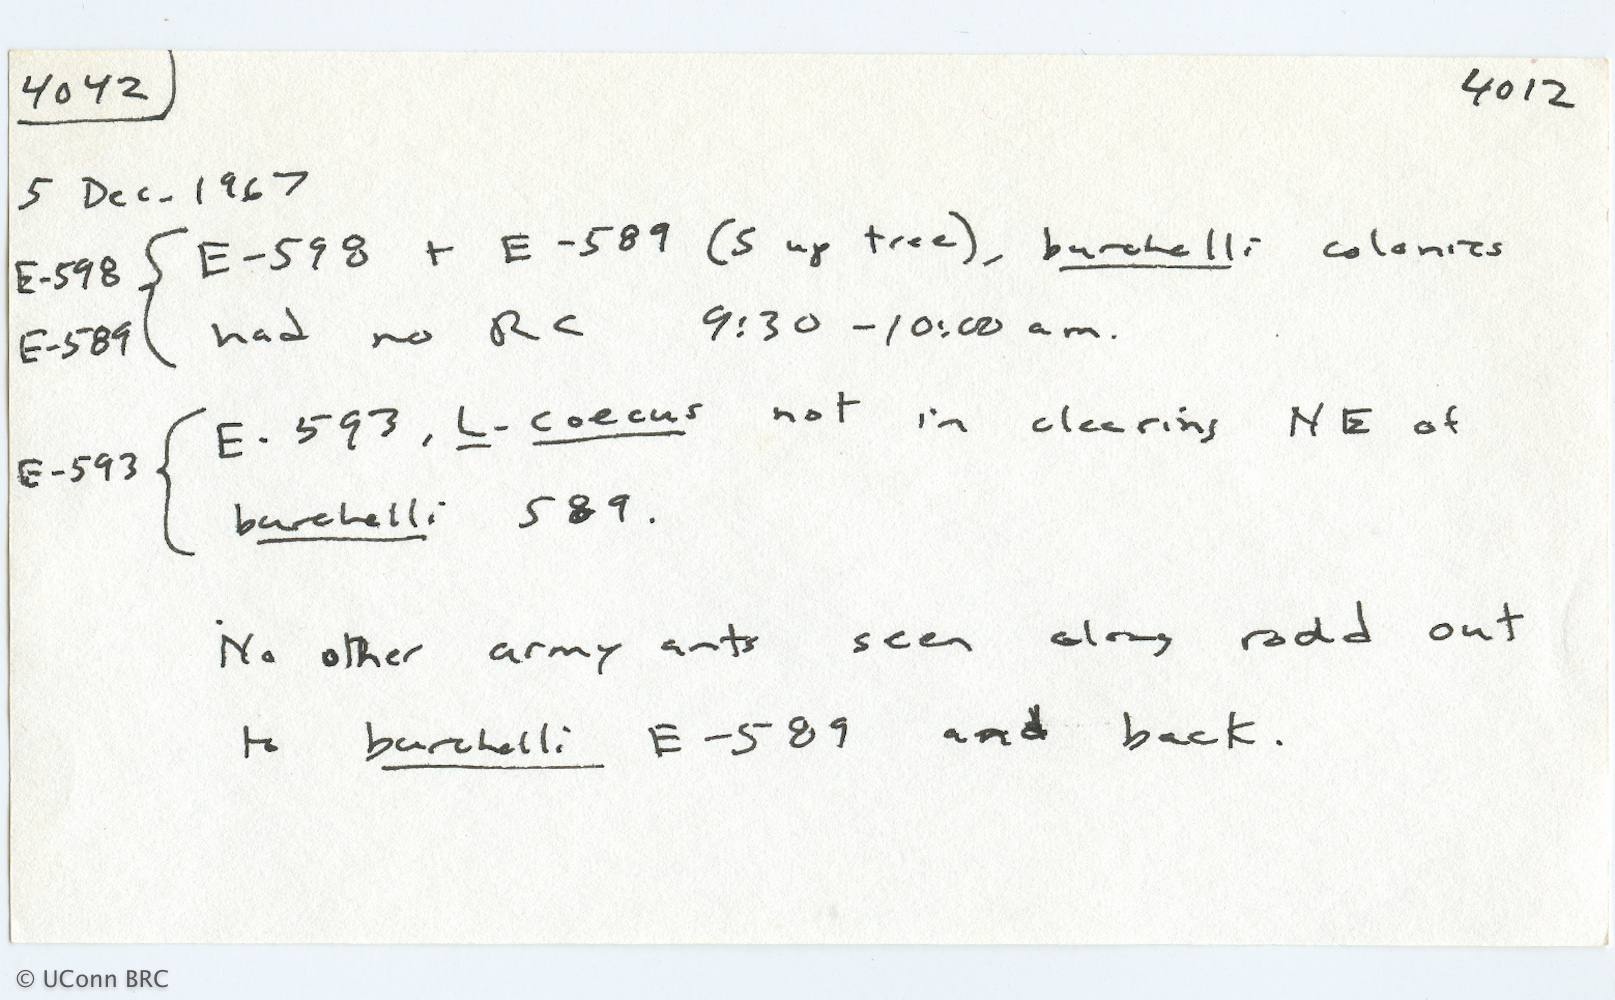 4042 4012
5 Dec. 1967
E-598 E-598 + E-589 (5 up tree), burchelli colonies
E-589 had no RC 9:30-10:00 am.
E-593, L. coecus not in clearing NE of
E-593
burchelli 589.
No other army ants seen along road out
to burchelli E-589 and back.
© UConn BRC